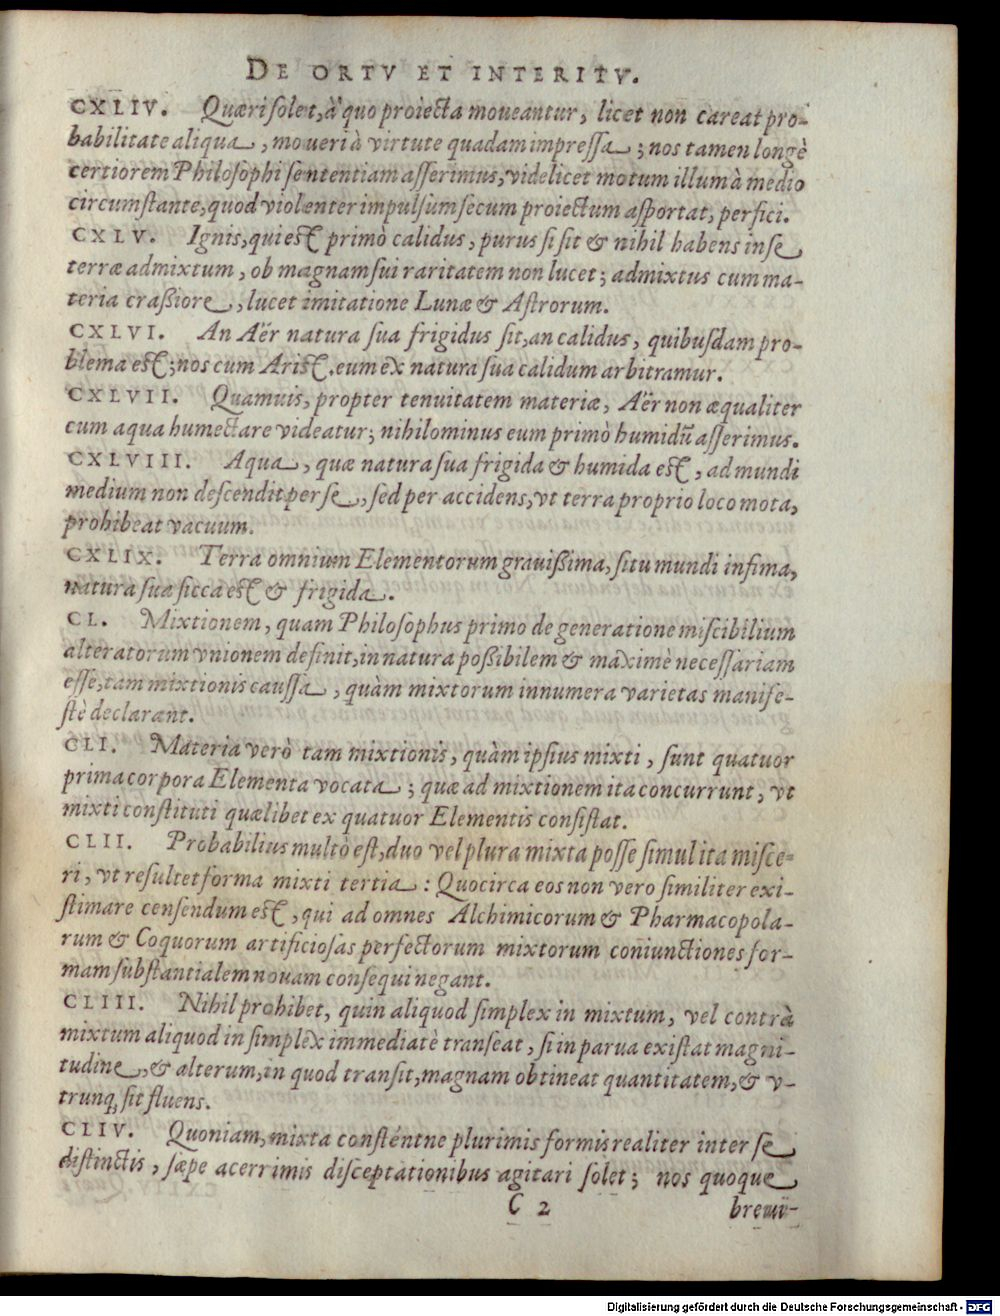 DE ORTV ET INTERITV.
CXLIV. Quæri solet, à quo proiecta moueantur, licet non careat pro-
babilitate aliqua, moueri à virtute quadam impressa; nos tamen longè
certiorem Philosophi sententiam asserimus, videlicet motum illum à medio
circumstante, quod violenter impulsum secum proiectum asportat, perfici.
CXLV. Ignis, qui est primò calidus, purus si sit & nihil habens in se
terræ admixtum, ob magnam sui raritatem non lucet; admixtus cum ma-
teria crassiore, lucet imitatione Lunæ & Astrorum.
CXLVI. An Aër natura sua frigidus sit, an calidus, quibusdam pro-
blema est; nos cum Arist. eum ex natura sua calidum arbitramur.
CXLVII. Quamuis, propter tenuitatem materiæ, Aër non æqualiter
cum aqua humectare videatur; nihilominus eum primò humidũ asserimus.
CXLVIII. Aqua, quæ natura sua frigida & humida est, ad mundi
medium non descendit per se, sed per accidens, vt terra proprio loco mota,
prohibeat vacuum.
CXLIX. Terra omnium Elementorum grauissima, situ mundi infima,
natura sua sicca est & frigida.
CL. Mixtionem, quam Philosophus primo de generatione miscibilium
alteratorum vnionem definit, in natura possibilem & maximè necessariam
esse, tam mixtionis caussa, quàm mixtorum innumera varietas manife-
stè declarant.
CLI. Materia verò tam mixtionis, quàm ipsius mixti, sunt quatuor
prima corpora Elementa vocata; quæ ad mixtionem ita concurrunt, vt
mixti constituti quælibet ex quatuor Elementis consistat.
CLII. Probabilius multò est, duo vel plura mixta posse simul ita misce-
ri, vt resultet forma mixti tertia: Quocirca eos non vero similiter exi-
stimare censendum est, qui ad omnes Alchimicorum & Pharmacopola-
rum & Coquorum artificiosas perfectorum mixtorum coniunctiones for-
mam substantialem nouam consequi negant.
CLIII. Nihil prohibet, quin aliquod simplex in mixtum, vel contrà
mixtum aliquod in simplex immediatè transeat, si in parua existat magni-
tudine, & alterum, in quod transit, magnam obtineat quantitatem, & v-
trunq; sit fluens.
CLIV. Quoniam, mixta consténtne plurimis formis realiter inter se
distinctis, sæpe acerrimis disceptationibus agitari solet; nos quoque
C 2 breui-
Digitalisierung gefördert durch die Deutsche Forschungsgemeinschaft - DFG